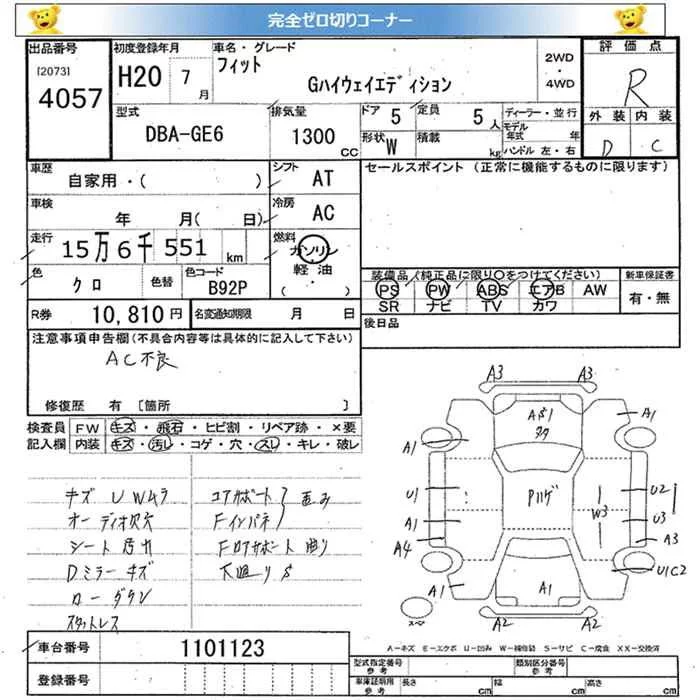 完全ゼロ切りコーナー
出品番号 初度登録年月 車名・グレード 評価点
[2073] 4057 H20 7月 フィット Gハイウェイエディション 2WD・4WD R
型式 DBA-GE6 排気量 1300 CC ドア 5 定員 5人 ディーラー・並行 外装 内装
形状 W 積載 kg モデル年式 年 ハンドル 左・右 D C
車歴 自家用・( ) シフト AT セールスポイント (正常に機能するものに限ります)
車検 年 月( 日) 冷房 AC
走行 15万6千551 km 燃料 ガソリン・軽油・( )
色 クロ 色替 色コード B92P
装備品(純正品に限り○をつけてください) 新車保証書
PS PW ABS エアB AW 有・無
SR ナビ TV カワ
R券 10,810円 名変通知期限 月 日 後日品
注意事項申告欄(不具合内容等は具体的に記入して下さい)
AC不良
修復歴 有 [箇所 ]
検査員 FW キズ・飛石・ヒビ割・リペア跡・×要
記入欄 内装 キズ・汚レ・コゲ・穴・スレ・キレ・破レ
キズ U Wムラ
オーディオ欠穴
シート汚れ
Dミラーキズ
ローダウン
スタットレス
コアサポート
Fインパネ
歪み
Fロアサポート曲り
下廻りS
A3 A3
A1 A1
U1 U2
A1 U3
A4 A3
A1 U1C2
A2 A2
W3
A1
スペア
A-キズ E-エクボ U-凹み W-補修跡 S-サビ C-腐食 XX-交換済
車台番号 1101123
登録番号
型式指定番号 参考 類別区分番号 参考
車庫証明用 参考 長さ cm 幅 cm 高さ cm